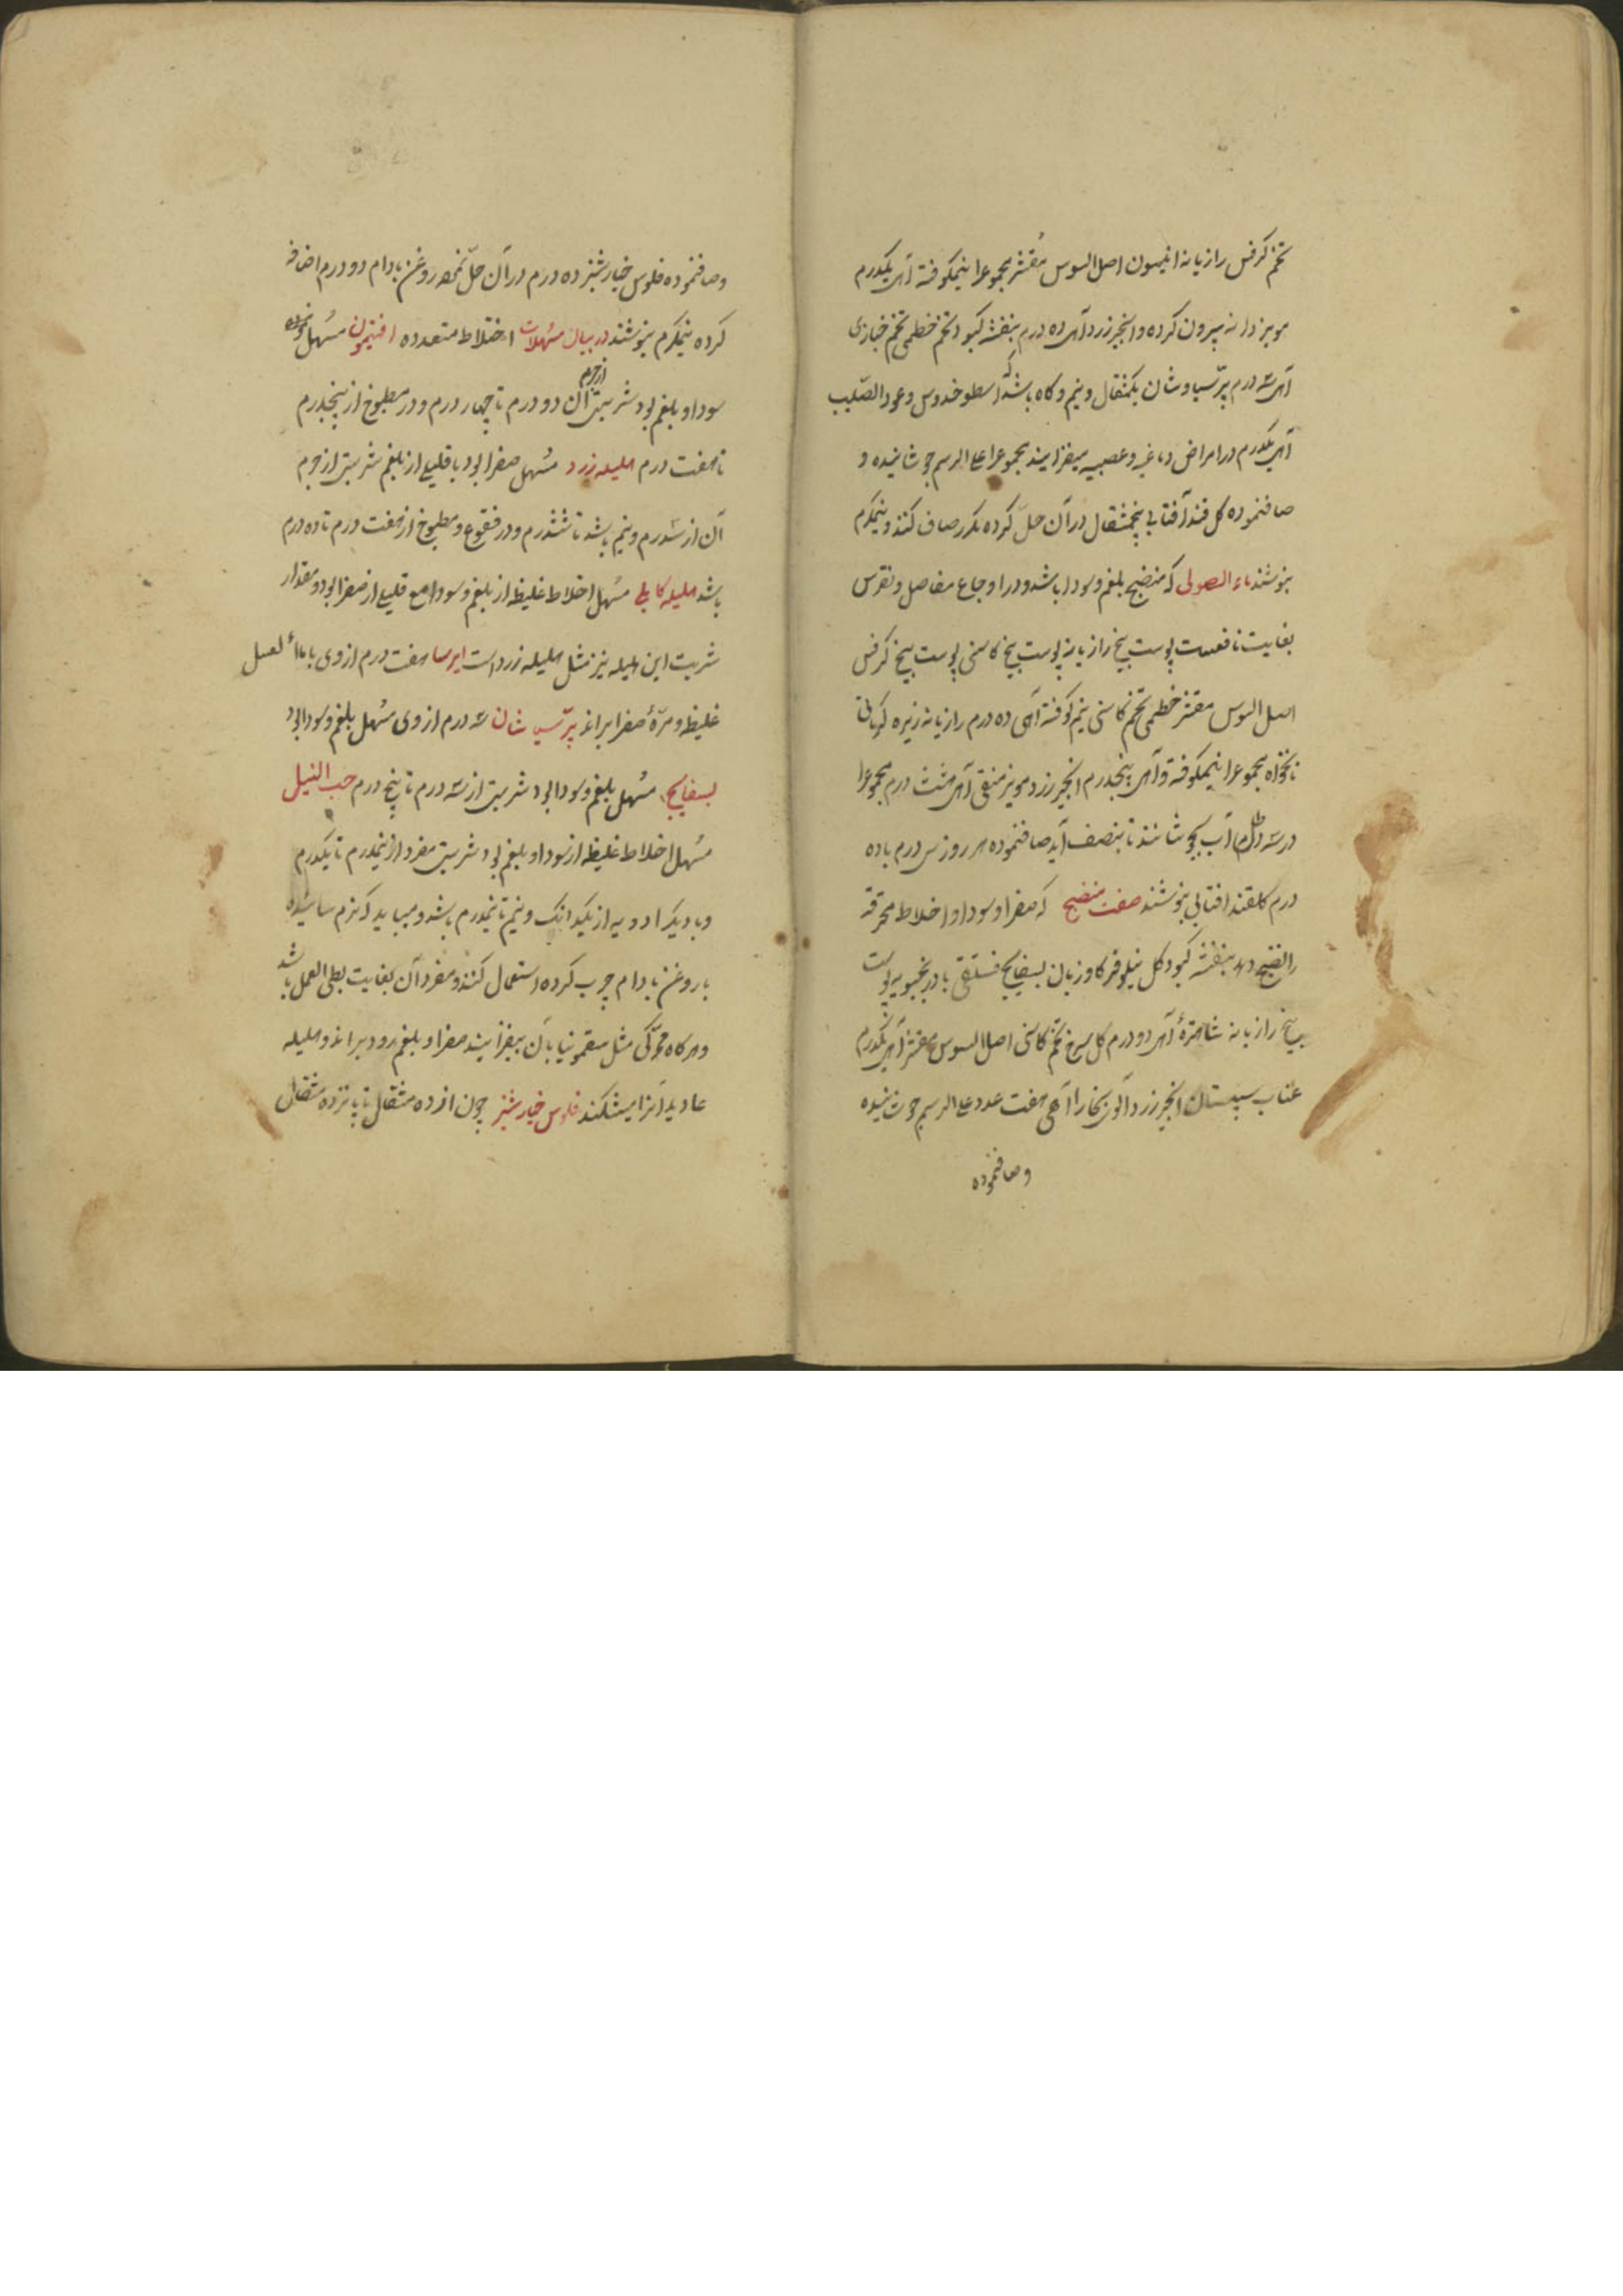 تخم کرفس رازیانه انیسون اصل السوس مقشر مجموعرا نیمکوفته آمر یکدرم
مویز دانه بیرون کرده و انجیر زرد آمر ده درم بنفشه کبود تخم خطمی تخم خبازی
آمر سه درم پرسیاوشان یکمثقال و نیم و کاه باشد که اسطوخدوس و عود الصلیب
آمر یکدرم در امراض دماغیه و عصبیه میفزایند مجموعرا علی الرسم جوشانیده و
صافنموده کل قند آفتابی پنجمثقال در آن حل کرده مکرر صاف کنند و نیمکرم
بنوشند ماء الاصولی که منضج بلغم و سودا باشد و در اوجاع مفاصل و نقرس
بغایت نافعست پوست بیخ رازیانه پوست بیخ کاسنی پوست بیخ کرفس
اصل السوس مقشر خطمی تخم کاسنی نیم کوفته آمر ده درم رازیانه زیره کرمانی
نانخواه مجموعرا نیمکوفته و آمر پنجدرم انجیر زرد مویز منقی آمر هشت درم مجموعرا
در سه رطل آب بجوشانند تا بنصف آید صافنموده هر روز سی درم با ده
درم کلقند افتابی بنوشند صفت منضج که صفرا و سودا و اخلاط محرقه
را نضج دهد بنفشه کبود کل نیلوفر کاوزبان بسفایج فستقی بادرنجبویه پوست
بیخ رازیانه شاهتره آمر دو درم کل سرخ تخم کاسنی اصل السوس مقشر آمر یکدرم
عناب سپستان انجیر زرد آلوی بخارا آمر هفت عدد علی الرسم جوشانیده
وصافنموده
وصافنموده فلوس خیارشنبر ده درم در آن حل نموده روغن بادام دو درم اضافه
کرده نیمکرم بنوشند در بیان مسهلات اختلاط متعدده افتیمون مسهل
سودا و بلغم بود شربتی از جرم آن دو درم تا چهار درم و در مطبوخ از پنجدرم
تا هفت درم هلیله زرد مسهل صفرا بود با قلیلی از بلغم شربتی از جرم
آن از سدرم و نیم باشد تا ششدرم و در نقوع و مطبوخ از هفت درم تا ده درم
باشد هلیله کابلی مسهل اخلاط غلیظه از بلغم و سودا مع قلیلی از صفرا بود و مقدار
شربت این هلیله نیز مثل هلیله زرد است ایرسا هفت درم از وی با ماء العسل
غلیظ و مرهٔ صفرا براند پرسیاوشان سه درم از وی مسهل بلغم و سودا بود
بسفایج مسهل بلغم و سودا بود شربتی از سه درم تا پنج درم حب النیل
مسهل اخلاط غلیظه از سودا و بلغم بود شربتی مفرد از نیمدرم تا یکدرم
و با دیکر ادویه از یکدانک و نیم تا نیمدرم باشد و میباید که نرم سائیده
با روغن بادام چرب کرده استعمال کنند و مفرد آن بغایت بطی العمل باشد
و هرکاه محرکی مثل سقمونیا بآن بیفزایند صفرا و بلغم زود براند و هلیله
عادیه آنرا میشکند فلوس خیارشنبر چون از ده مثقال تا پانزده مثقال